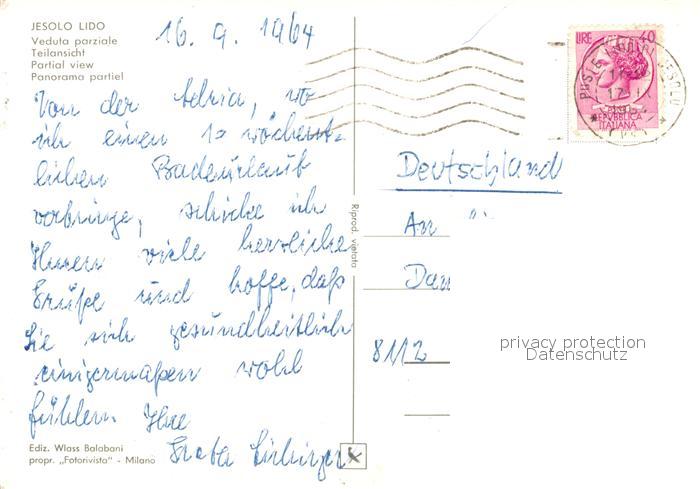 JESOLO LIDO
Veduta parziale
Teilansicht
Partial view
Panorama partiel
16. 9. 1964
Von der Adria, wo
ich einen 10 wöchent-
lichen Badeurlaub
verbringe, schicke ich
Ihnen viele herzliche
Grüße und hoffe, daß
Sie sich gesundheitlich
einigermaßen wohl
fühlen. Ihre
Ediz. Wlass Balabani
propr. „Fotorivista" - Milano
Riprod. vietata
LIRE 40
REPVBBLICA
ITALIANA
JESOLO
Deutschland
An
Dan
8112
privacy protection
Datenschutz